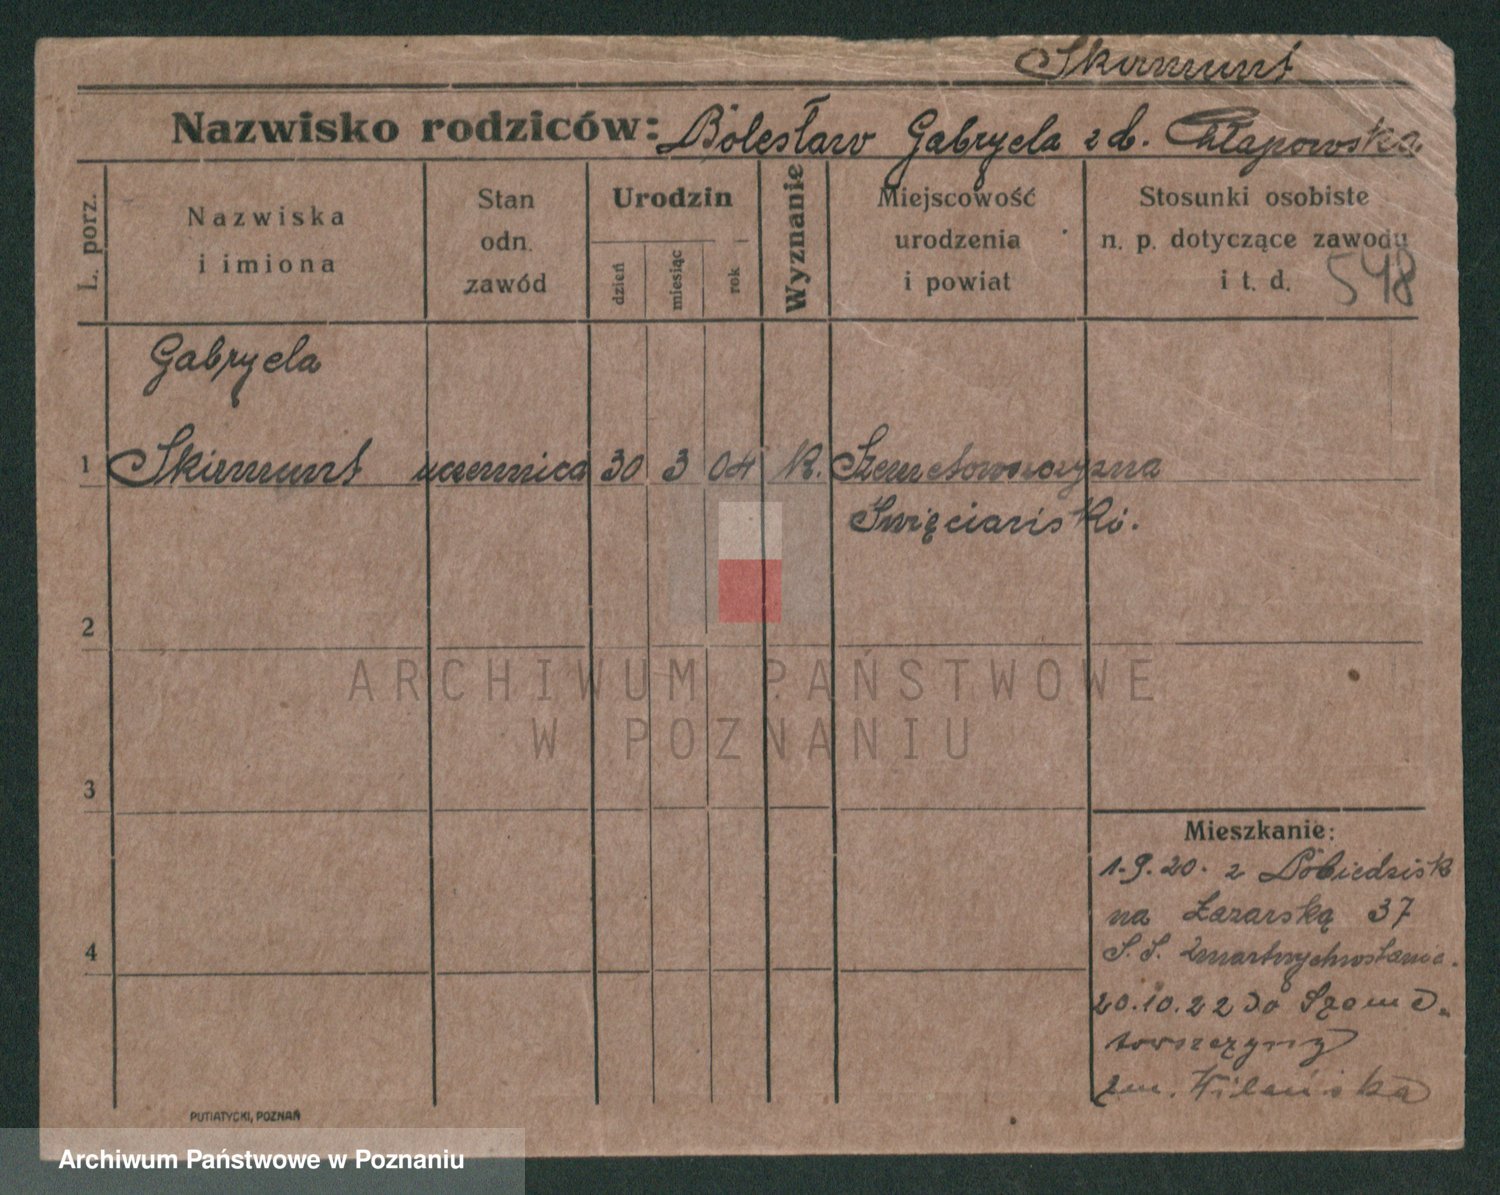 Skirmunt
Nazwisko rodziców: Bolesław Gabryela z d. Chłapowska
L. porz.
Nazwiska
i imiona
Stan
odn.
zawód
Urodzin
dzień
miesiąc
rok
Wyznanie
Miejscowość
urodzenia
i powiat
Stosunki osobiste
n. p. dotyczące zawodu
i t. d.
548
Gabryela
1 Skirmunt uczennica 30 3 04 k. Szemetowszczyzna
Święciański.
2
3
4
Mieszkanie:
1.9.20. z Pobiedzisk
na Łazarską 37
S. S. Zmartwychwstania.
20.10.22 do Szeme-
towszczyzny
zm. Wileńska
PUTIATYCKI, POZNAŃ
ARCHIWUM PAŃSTWOWE
W POZNANIU
Archiwum Państwowe w Poznaniu